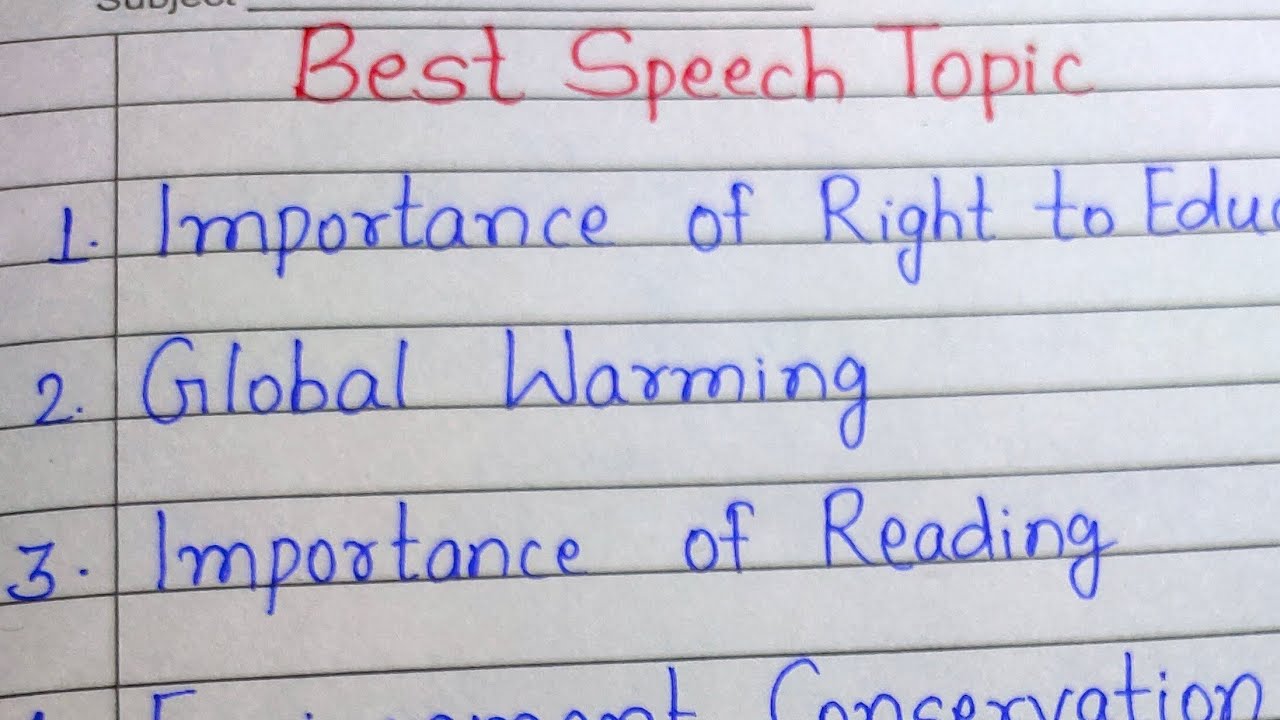 Subject
Best Speech Topic
1. Importance of Right to Edu
2. Global Warming
3. Importance of Reading
Conservation